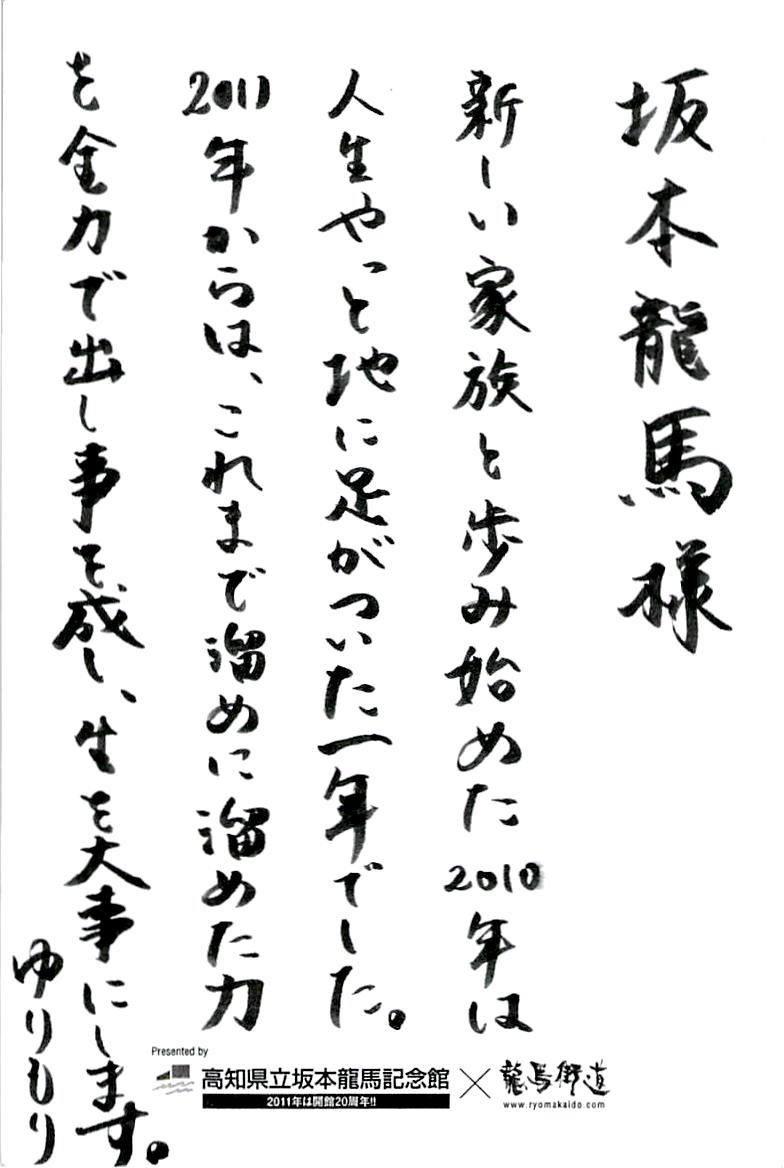 坂本龍馬様
新しい家族と歩み始めた2010年は
人生やっと地に足がついた一年でした。
2011年からは、これまで溜めに溜めた力
を全力で出し事を成し、生を大事にします。
ゆりもり
Presented by
高知県立坂本龍馬記念館
2011年は開館20周年!!
×
龍馬街道
www.ryomakaido.com